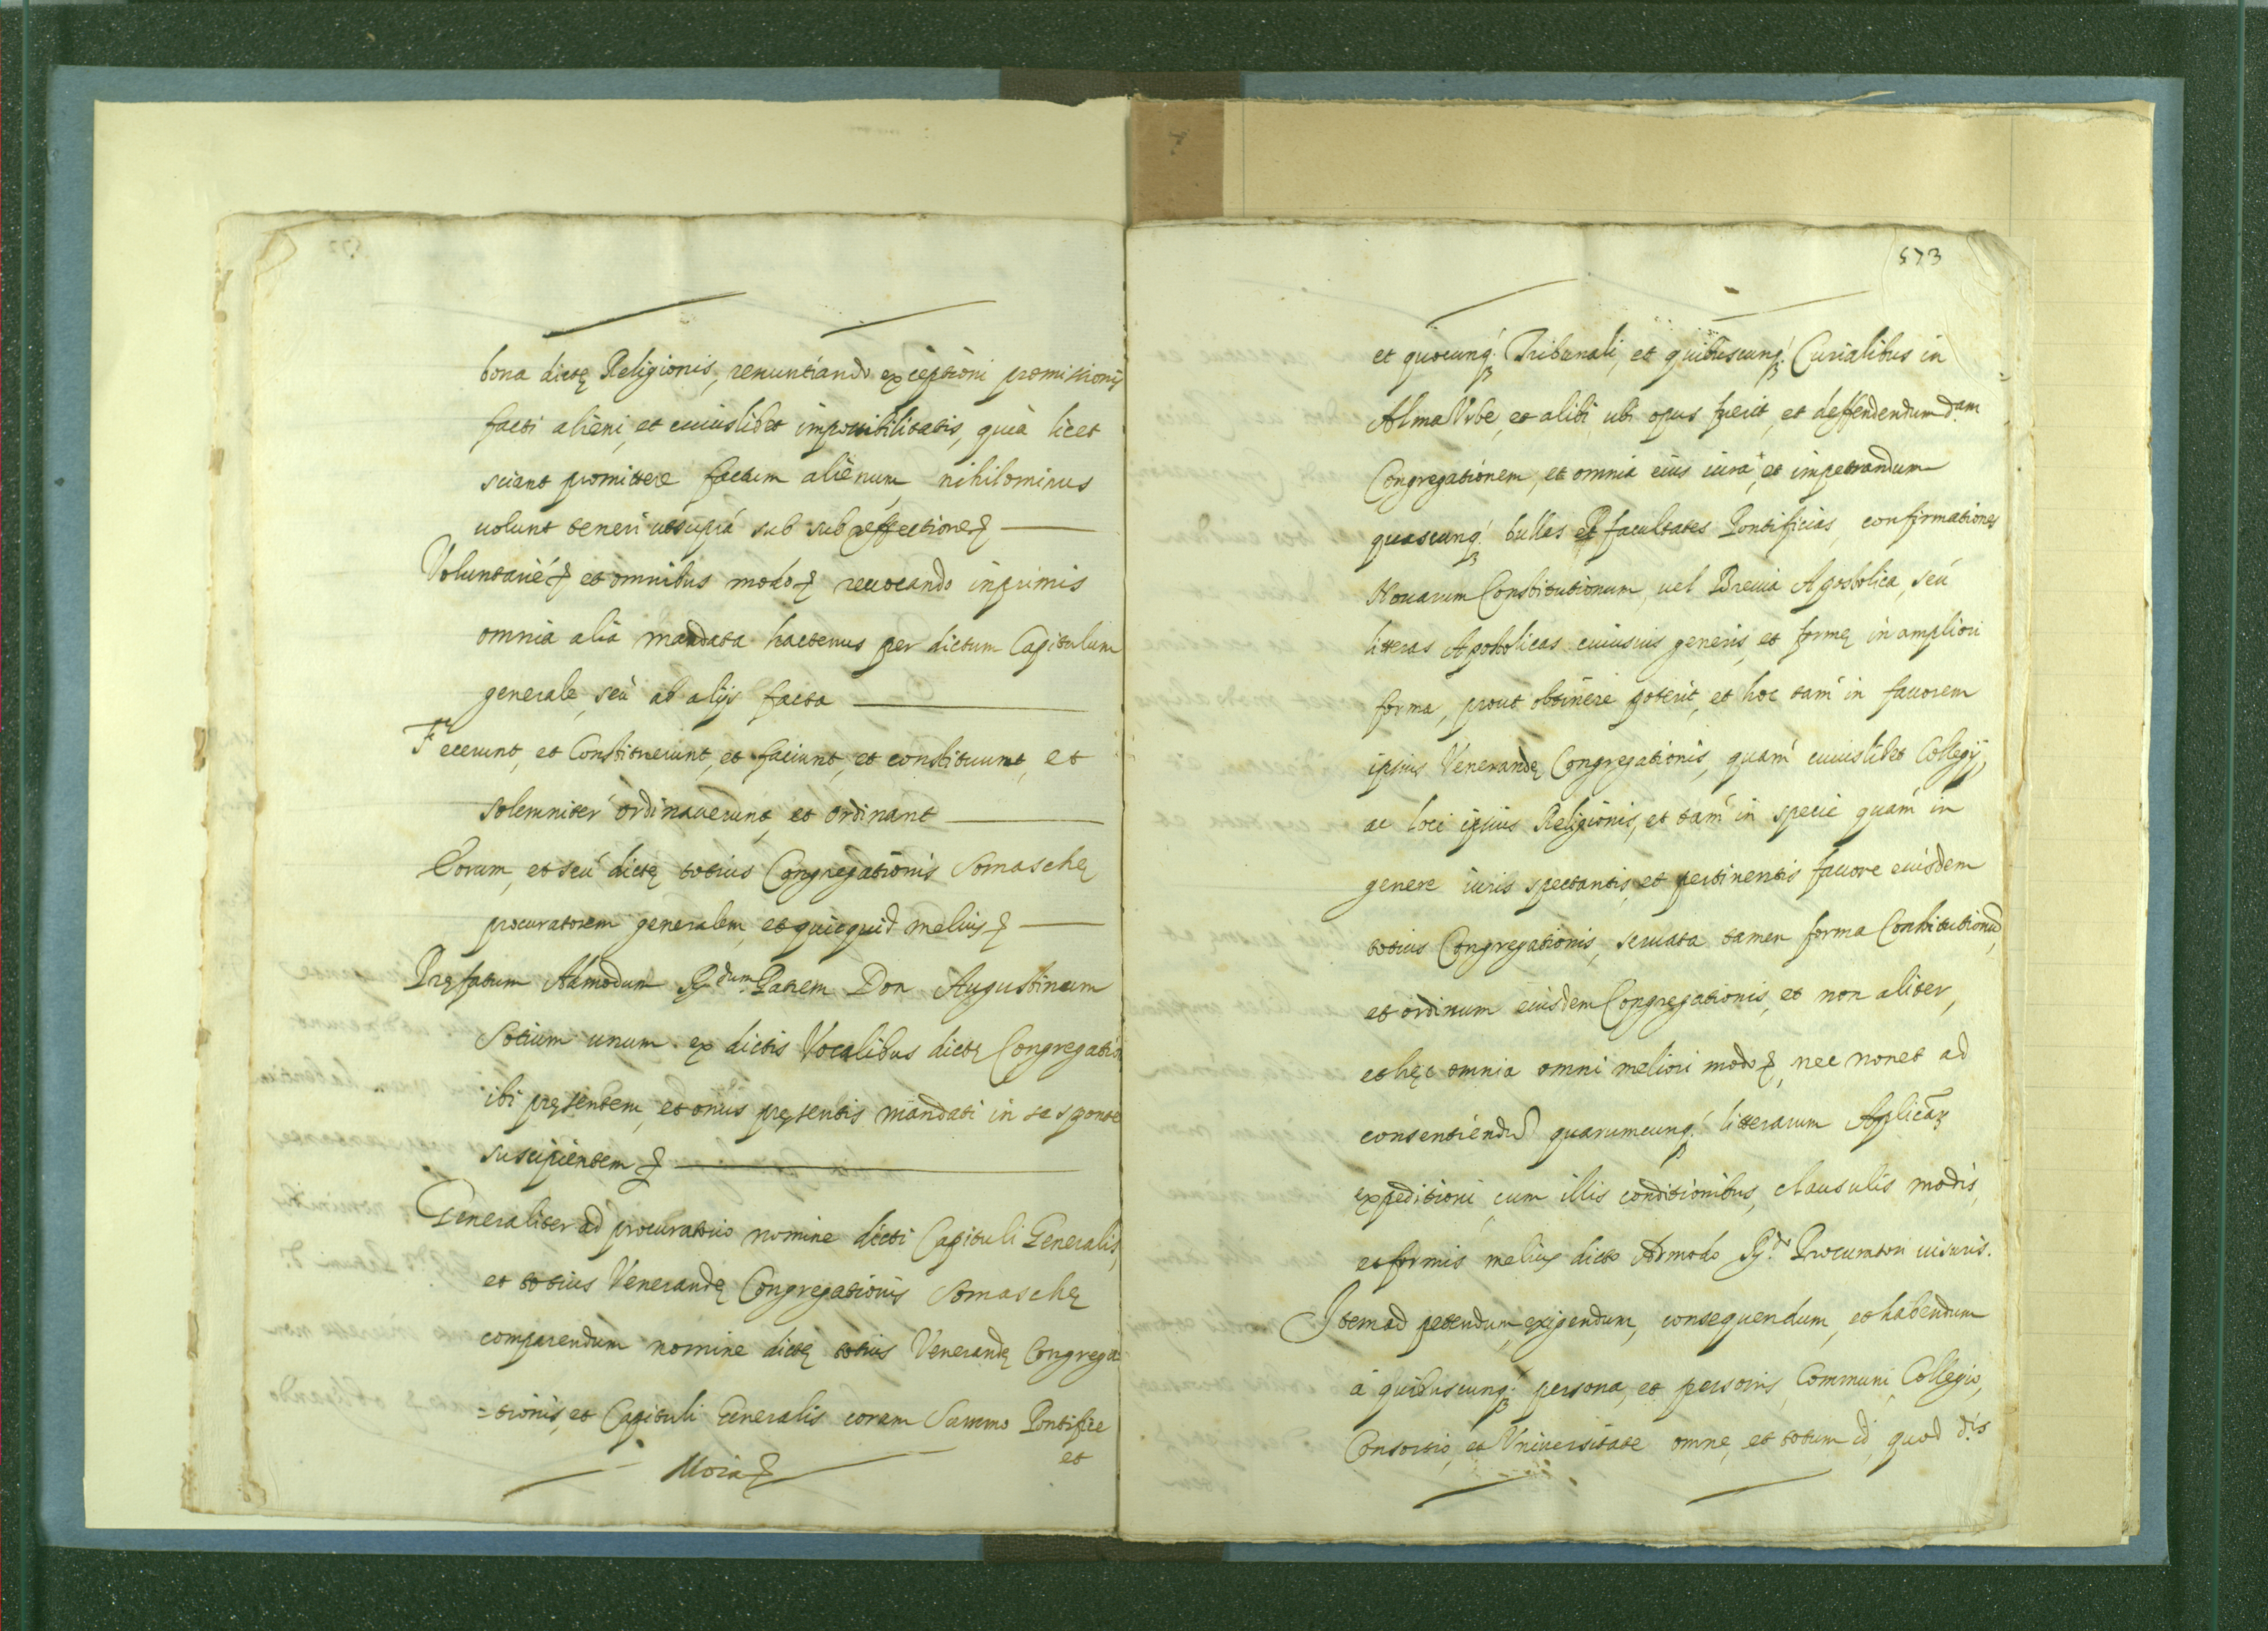 bona dictę Religionis, renuntiando exceptioni promissionis
facti alieni, et cuiuslibet impossibilitatis, quia licet
sciant promittere factum alienum, nihilominus
uolunt teneri utsupra sub sub reffectione &
Voluntarie & et omnibus modo & reuocando inprimis
omnia alia mandata hactenus per dictum Capitulum
generale, seu ab alijs facta
Fecerunt, et Constituerunt, et faciunt, et constituunt, et
solemniter ordinauerunt, et ordinant
Eorum, et seu dictę totius Congregationis Somaschę
procuratorem generalem, et quicquid melius &
Pręfatum Admodum R.dum Patrem Don Augustinum
Sotium unum ex dictis Vocalibus dictę Congregatio
ibi pręsentem, et onus pręsentis mandati in se sponte
suscipientem &
Generaliter ad procuratorio nomine dicti Capituli Generalis,
et totius Venerandę Congregationis Somaschę
comparendum nomine dictę totius Venerandę Congrega
=tionis, et Capituli Generalis coram Summo Pontifice
et
573
et quocunq. Tribunali, et quibuscunq. Curialibus in
Alma Vrbe, et alibi ubi opus fuerit, et deffendendum d.am
Congregationem, et omnia eius iura, et impetrandum
quascunq. bullas et facultates Pontificias, confirmationes
Nouarum Constitutionum, uel Breuia Apostolica, seu
litteras Apostolicas cuiusuis generis, et formę in ampliori
forma, prout obtinere poterit, et hoc tam in fauorem
ipsius Venerandę Congregationis, quam cuiuslibet Collegij,
ac loci ipsius Religionis, et tam in specie quam in
genere iuris spectantis, et pertinentis fauore eiusdem
totius Congregationis, seruata tamen forma Constitutionũ,
et ordinum eiusdem Congregationis, et non aliter,
et hęc omnia omni meliori modo &, nec non et ad
consentiendũ quarumcunq. litterarum Aplicaȝ
expeditioni, cum illis conditionibus, clausulis modis,
et formis melius dicto Admodo R.do Procuratori uisuris.
Item ad petendum, exigendum, consequendum, et habendum
à quibuscunq. persona, et personis, Communi, Collegio,
Consortio, et Vniuersitate omne, et totum id, quod d.is